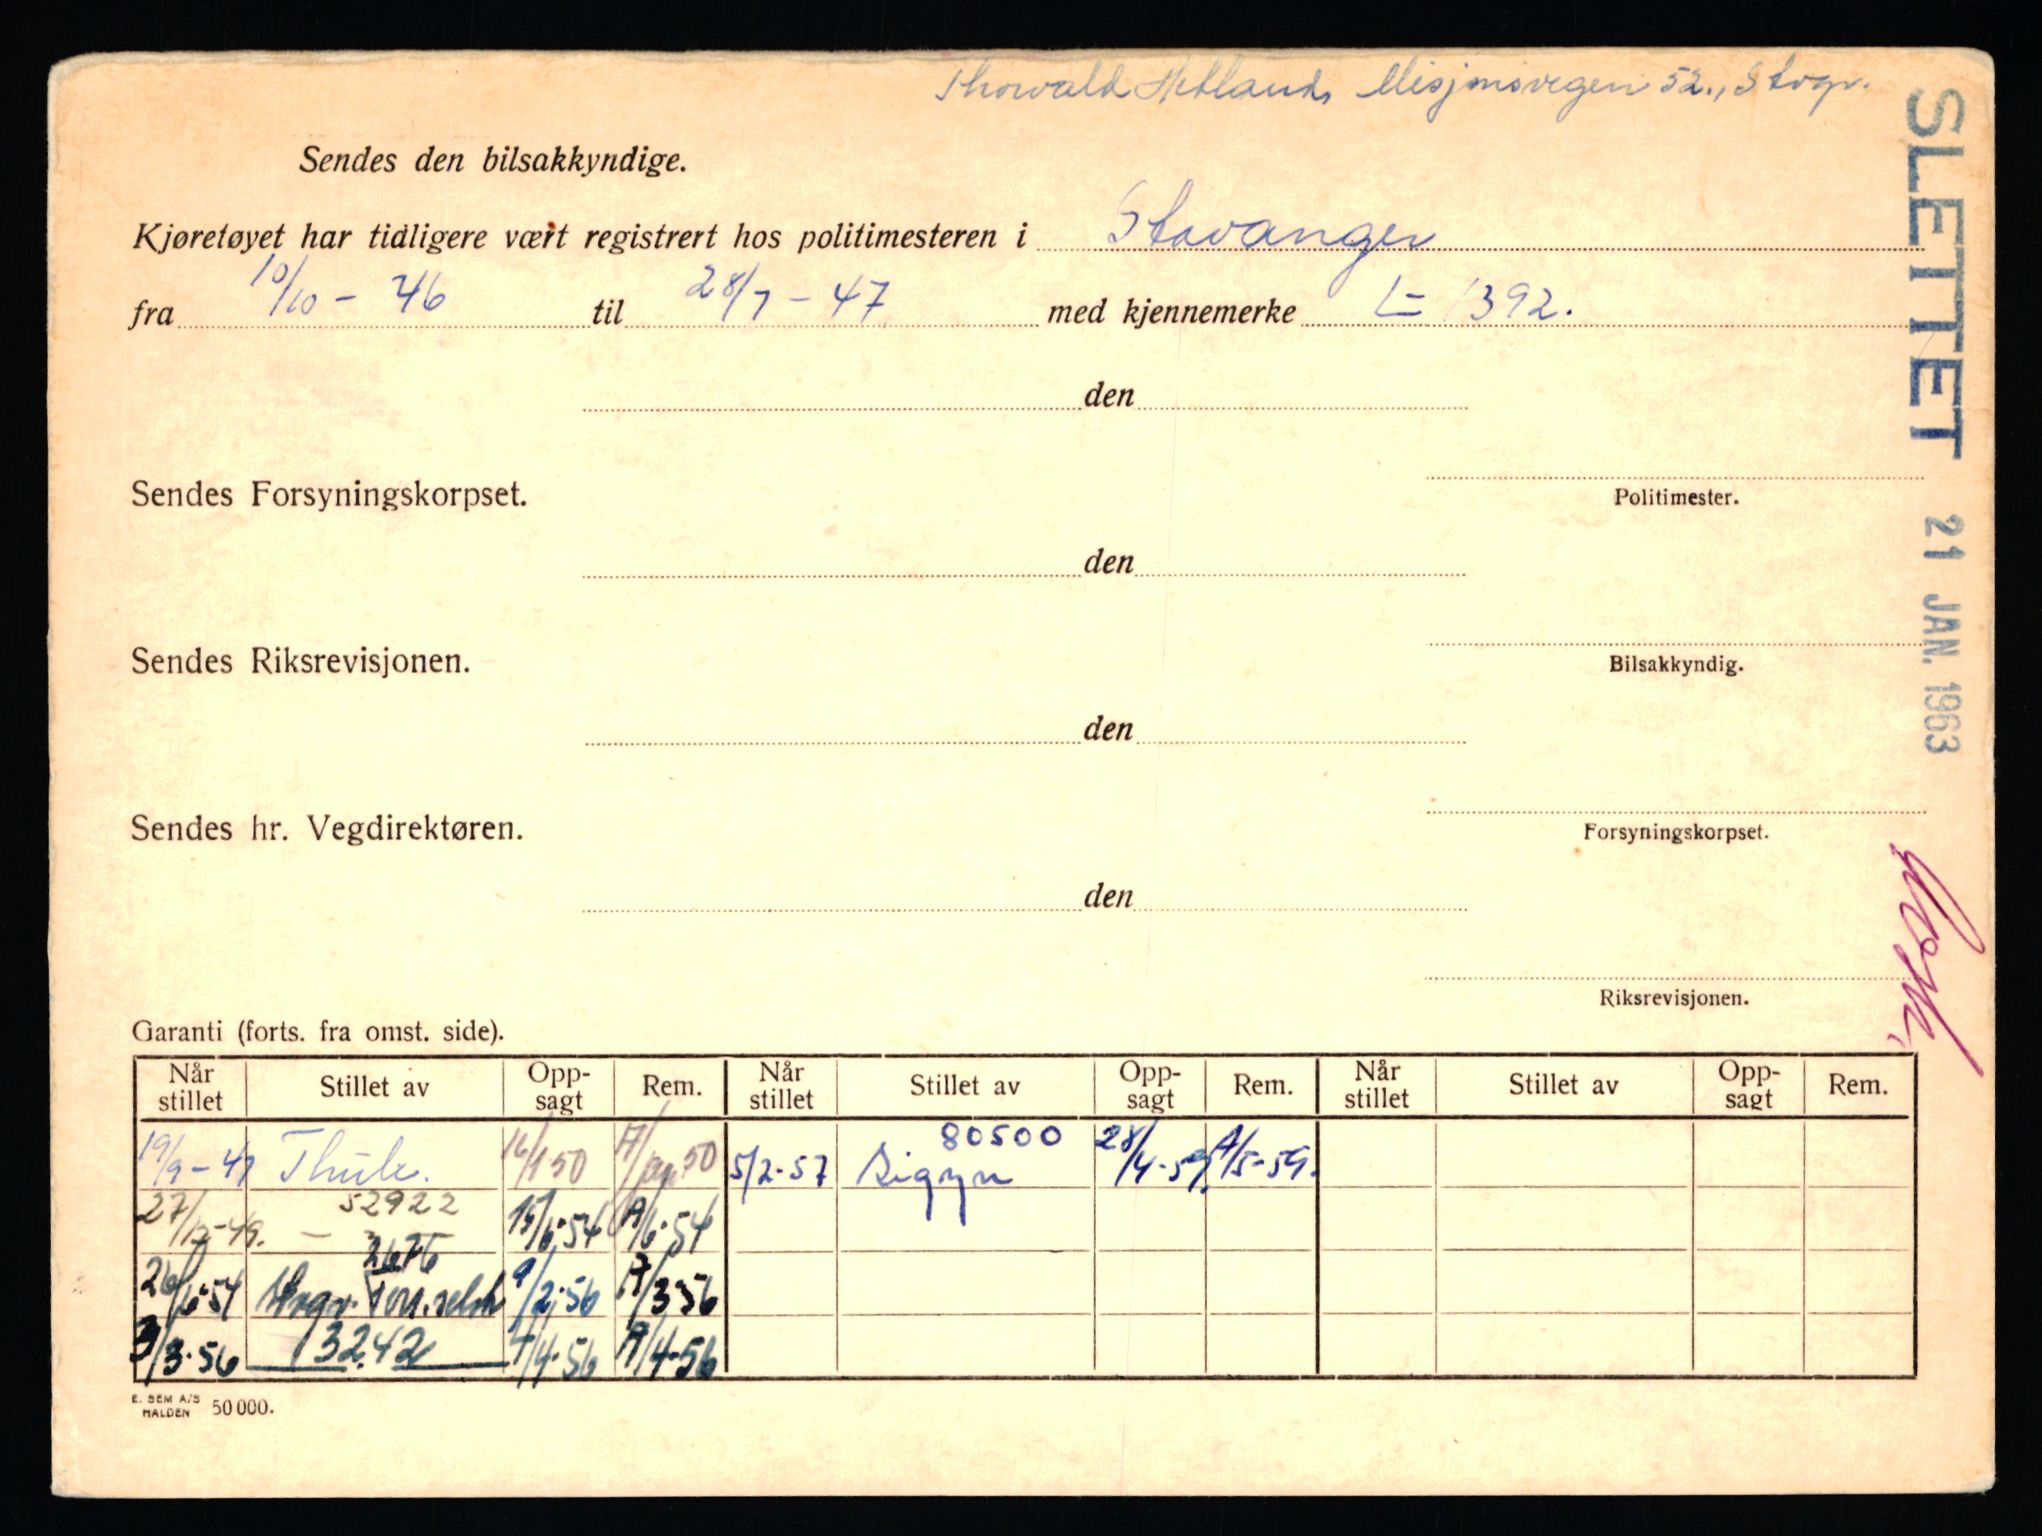 Thorvald Hetland, Misjonsvegen 52., Stvgr.
Sendes den bilsakkyndige.
Kjøretøyet har tidligere vært registrert hos politimesteren i Stavanger
fra 10/10 - 46 til 28/7 - 47 med kjennemerke L - 1392.
den
Politimester.
Sendes Forsyningskorpset.
den
Bilsakkyndig.
Sendes Riksrevisjonen.
den
Forsyningskorpset.
Sendes hr. Vegdirektøren.
den
Riksrevisjonen.
SLETTET 21 JAN. 1963
Garanti (forts. fra omst. side).
Når stillet Stillet av Opp-sagt Rem. Når stillet Stillet av Opp-sagt Rem. Når stillet Stillet av Opp-sagt Rem.
19/9 - 47 Thule. 16/1 50 50 5/2 - 57 80500 Sigyn 28/4 - 59. A/5 - 59.
27/12 - 49. — 52922 15/6 - 54 A/6 - 54
26/6 - 54 2676 9/2 - 56 A/3 56
3/3 - 56 13242 4/4 - 56 A/4 - 56
E. SEM A/S
HALDEN 50 000.